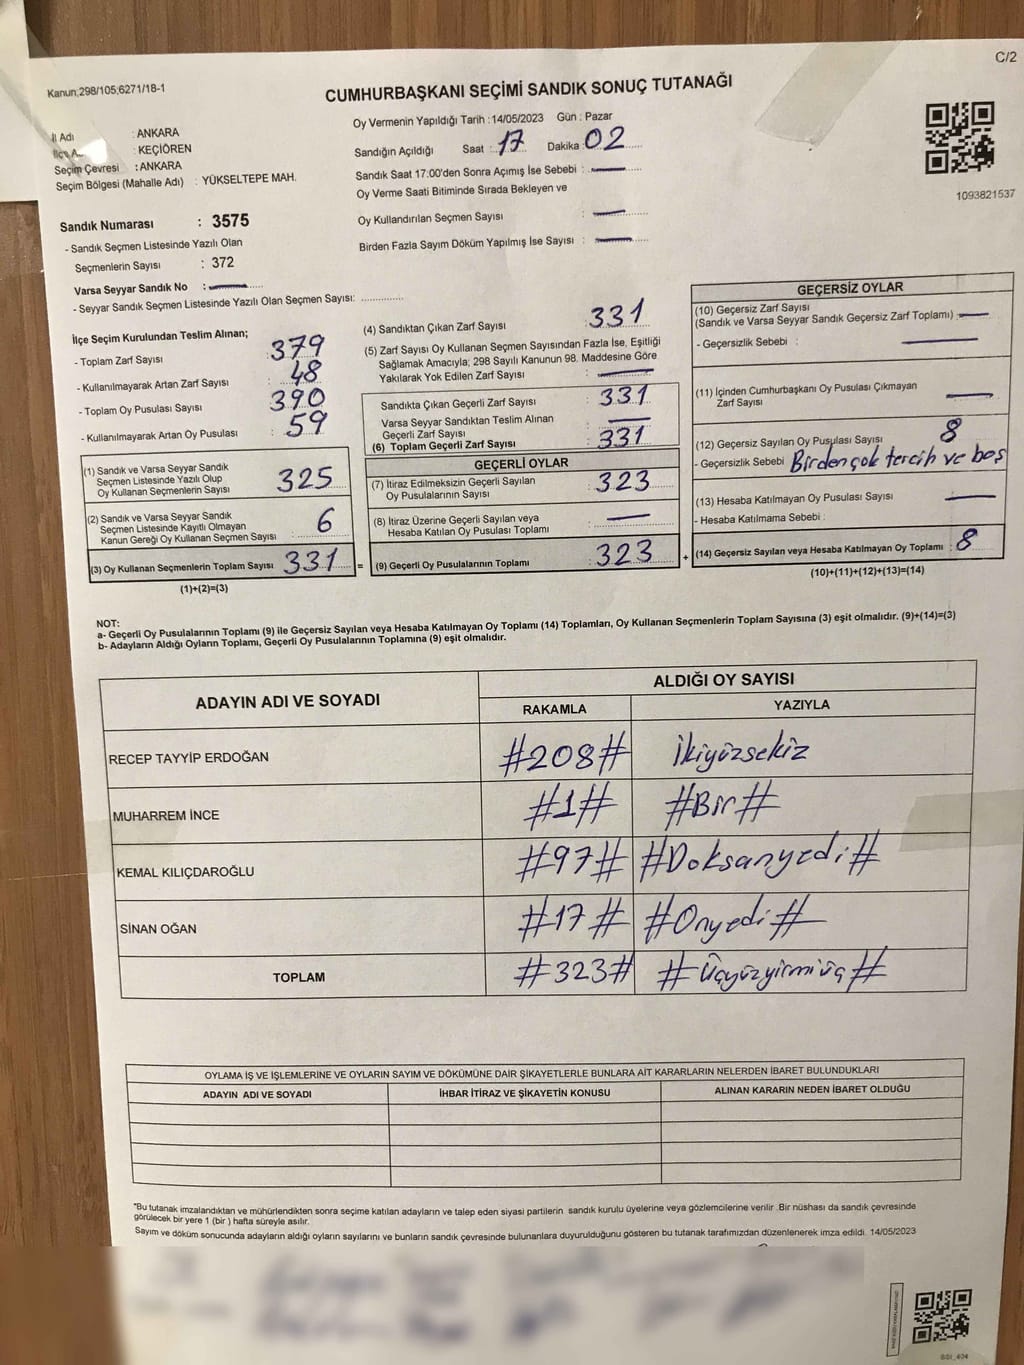 C/2
Kanun;298/105;6271/18-1
CUMHURBAŞKANI SEÇİMİ SANDIK SONUÇ TUTANAĞI
İl Adı : ANKARA
İlçe A... : KEÇİÖREN
Seçim Çevresi : ANKARA
Seçim Bölgesi (Mahalle Adı) : YÜKSELTEPE MAH.
Oy Vermenin Yapıldığı Tarih : 14/05/2023 Gün : Pazar
Sandığın Açıldığı Saat : 17 Dakika : 02
Sandık Saat 17:00'den Sonra Açımış İse Sebebi :
Oy Verme Saati Bitiminde Sırada Bekleyen ve
Oy Kullandırılan Seçmen Sayısı :
Birden Fazla Sayım Döküm Yapılmış İse Sayısı :
1093821537
Sandık Numarası : 3575
- Sandık Seçmen Listesinde Yazılı Olan
Seçmenlerin Sayısı : 372
Varsa Seyyar Sandık No :
- Seyyar Sandık Seçmen Listesinde Yazılı Olan Seçmen Sayısı:
İlçe Seçim Kurulundan Teslim Alınan;
- Toplam Zarf Sayısı : 379
- Kullanılmayarak Artan Zarf Sayısı : 48
- Toplam Oy Pusulası Sayısı : 390
- Kullanılmayarak Artan Oy Pusulası : 59
(1) Sandık ve Varsa Seyyar Sandık
Seçmen Listesinde Yazılı Olup
Oy Kullanan Seçmenlerin Sayısı : 325
(2) Sandık ve Varsa Seyyar Sandık
Seçmen Listesinde Kayıtlı Olmayan
Kanun Gereği Oy Kullanan Seçmen Sayısı : 6
(3) Oy Kullanan Seçmenlerin Toplam Sayısı : 331 =
(1)+(2)=(3)
(4) Sandıktan Çıkan Zarf Sayısı : 331
(5) Zarf Sayısı Oy Kullanan Seçmen Sayısından Fazla İse, Eşitliği
Sağlamak Amacıyla; 298 Sayılı Kanunun 98. Maddesine Göre
Yakılarak Yok Edilen Zarf Sayısı :
Sandıkta Çıkan Geçerli Zarf Sayısı : 331
Varsa Seyyar Sandıktan Teslim Alınan
Geçerli Zarf Sayısı :
(6) Toplam Geçerli Zarf Sayısı : 331
GEÇERLİ OYLAR
(7) İtiraz Edilmeksizin Geçerli Sayılan
Oy Pusulalarının Sayısı : 323
(8) İtiraz Üzerine Geçerli Sayılan veya
Hesaba Katılan Oy Pusulası Toplamı :
(9) Geçerli Oy Pusulalarının Toplamı : 323 +
GEÇERSİZ OYLAR
(10) Geçersiz Zarf Sayısı
(Sandık ve Varsa Seyyar Sandık Geçersiz Zarf Toplamı) :
- Geçersizlik Sebebi :
(11) İçinden Cumhurbaşkanı Oy Pusulası Çıkmayan
Zarf Sayısı :
(12) Geçersiz Sayılan Oy Pusulası Sayısı : 8
- Geçersizlik Sebebi : Birden çok tercih ve boş
(13) Hesaba Katılmayan Oy Pusulası Sayısı :
- Hesaba Katılmama Sebebi :
(14) Geçersiz Sayılan veya Hesaba Katılmayan Oy Toplamı : 8
(10)+(11)+(12)+(13)=(14)
NOT:
a- Geçerli Oy Pusulalarının Toplamı (9) ile Geçersiz Sayılan veya Hesaba Katılmayan Oy Toplamı (14) Toplamları, Oy Kullanan Seçmenlerin Toplam Sayısına (3) eşit olmalıdır. (9)+(14)=(3)
b- Adayların Aldığı Oyların Toplamı, Geçerli Oy Pusulalarının Toplamına (9) eşit olmalıdır.
ADAYIN ADI VE SOYADI
ALDIĞI OY SAYISI
RAKAMLA YAZIYLA
RECEP TAYYİP ERDOĞAN #208# İkiyüzsekiz
MUHARREM İNCE #1# #Bir#
KEMAL KILIÇDAROĞLU #97# #Doksanyedi#
SİNAN OĞAN #17# #Onyedi#
TOPLAM #323# #Üçyüzyirmiüç#
OYLAMA İŞ VE İŞLEMLERİNE VE OYLARIN SAYIM VE DÖKÜMÜNE DAİR ŞİKAYETLERLE BUNLARA AİT KARARLARIN NELERDEN İBARET BULUNDUKLARI
ADAYIN ADI VE SOYADI İHBAR İTİRAZ VE ŞİKAYETİN KONUSU ALINAN KARARIN NEDEN İBARET OLDUĞU
"Bu tutanak imzalandıktan ve mühürlendikten sonra seçime katılan adayların ve talep eden siyasi partilerin sandık kurulu üyelerine veya gözlemcilerine verilir .Bir nüshası da sandık çevresinde
görülecek bir yere 1 (bir ) hafta süreyle asılır.
Sayım ve döküm sonucunda adayların aldığı oyların sayılarını ve bunların sandık çevresinde bulunanlara duyurulduğunu gösteren bu tutanak tarafımızdan düzenlenerek imza edildi. 14/05/2023